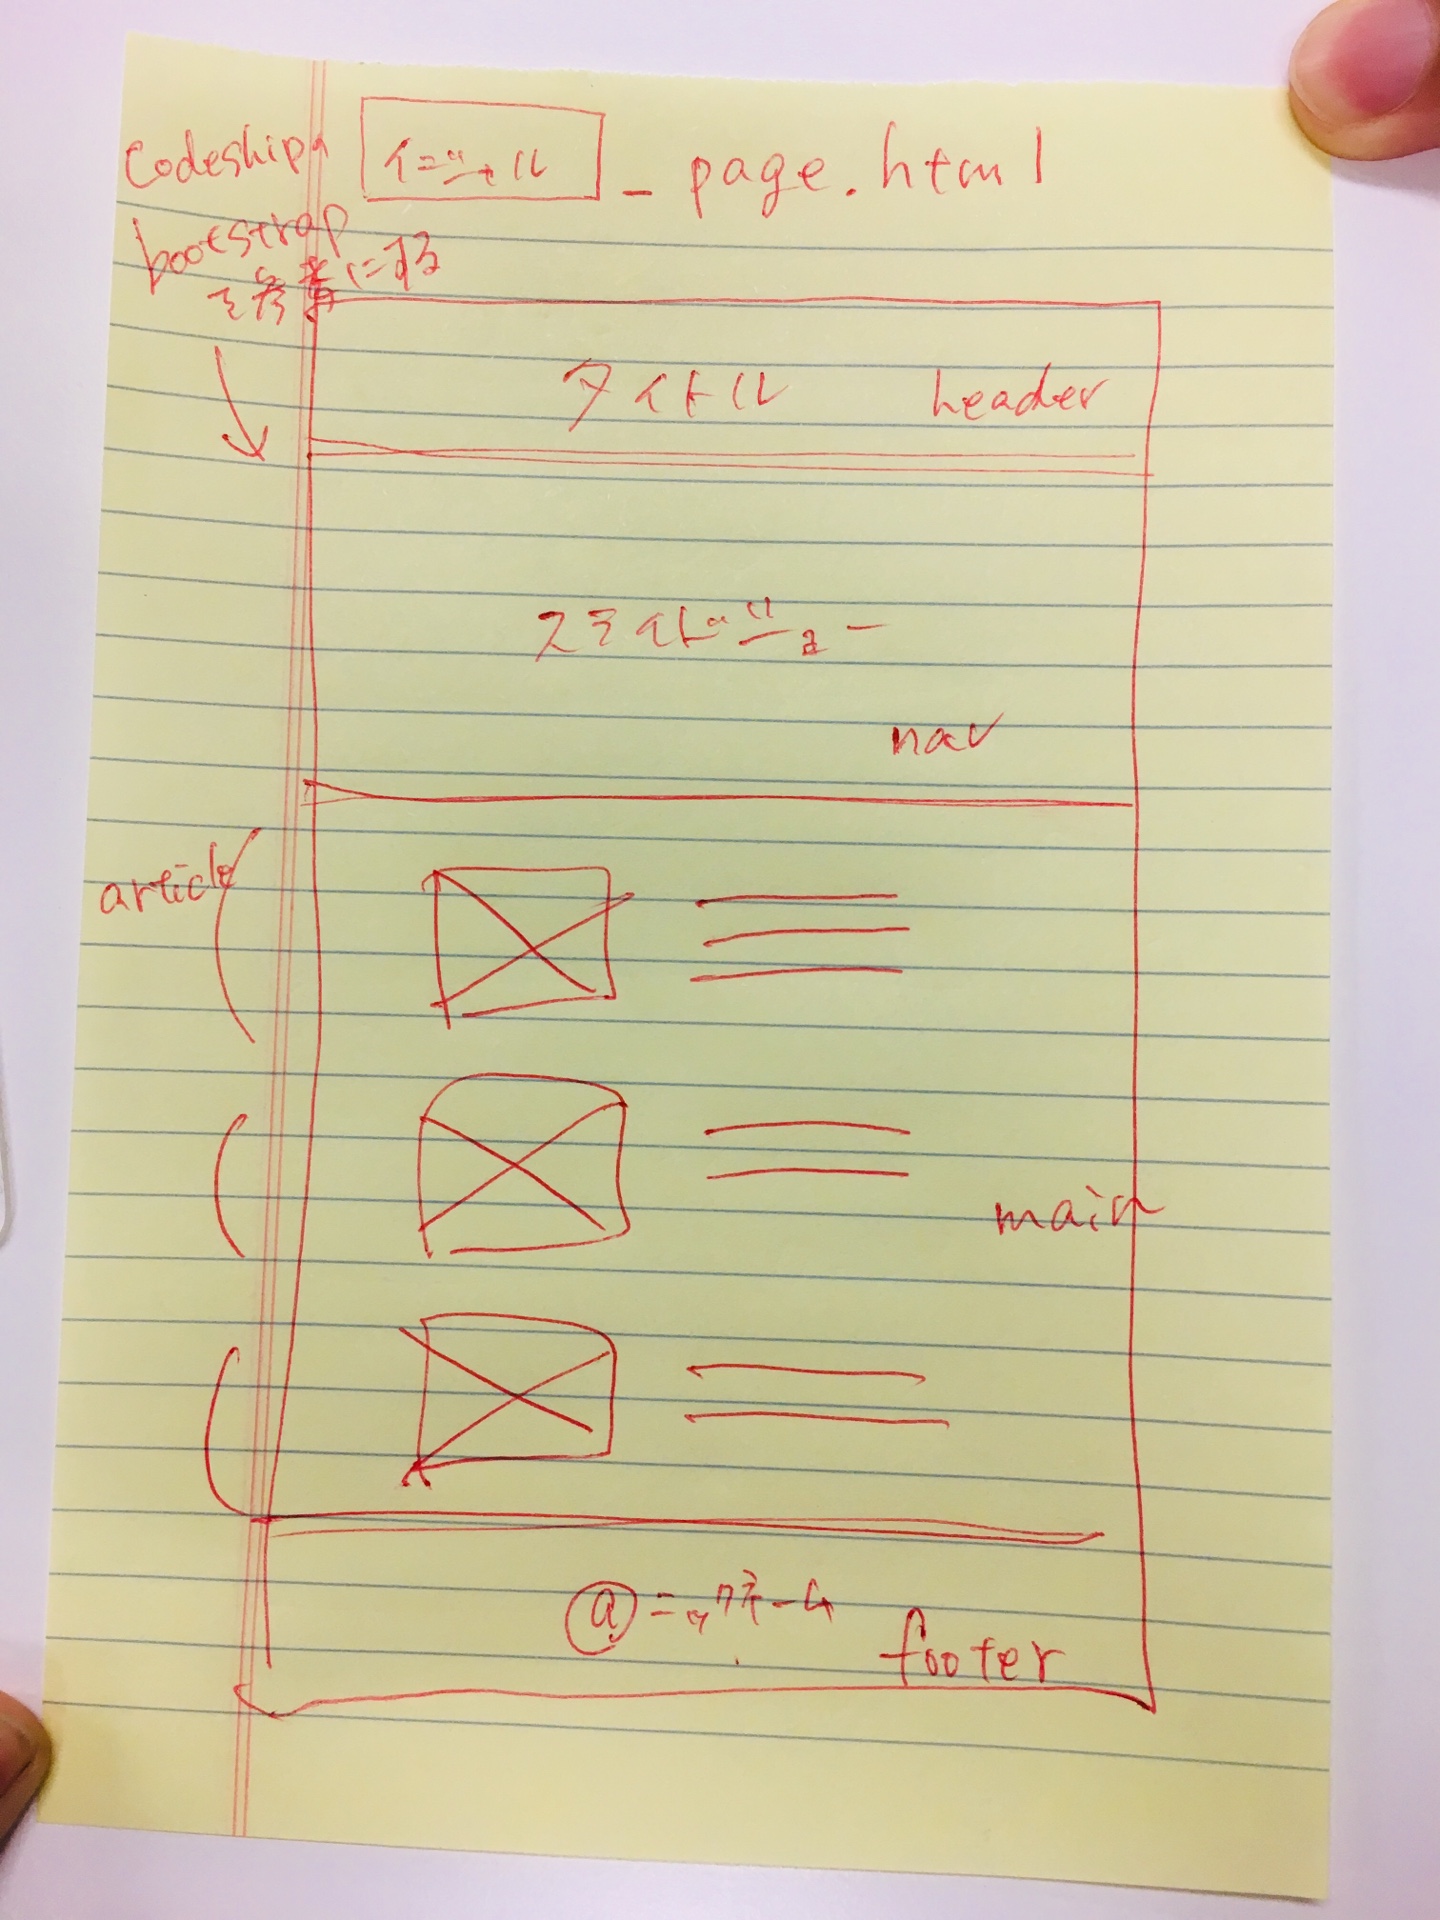 codeship
イニシャル _ page.html
bootstrap
を参考にする
タイトル header
スライドショー
nav
article
main
@ニックネーム
footer